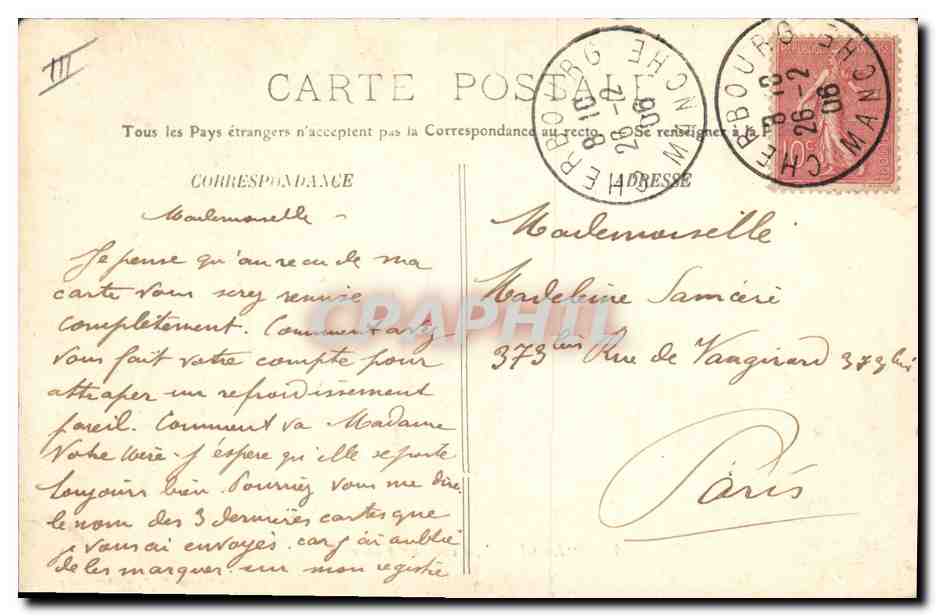 III
CARTE POSTALE
Tous les Pays étrangers n'acceptent pas la Correspondance au recto. Se renseigner à la P
CORRESPONDANCE
Mademoiselle
Je pense qu'au recu de ma
carte vous serez remise
complètement. Comment avez
vous fait votre compte pour
attraper un refroidissement
pareil. Comment va Madame
Votre Mère. J'éspère qu'elle se porte
toujours bien. Pourriez vous me dire
le nom des 3 dernières cartes que
je vous ai envoyés. car j'ai oublié
de les marquer sur mon registre
ADRESSE
Mademoiselle
Madeleine Saméré
373 bis Rue de Vaugirard 373 bis
Paris
CHERBOURG MANCHE
8 10
26 - 2
06
CHERBOURG MANCHE
8 10
26 - 2
06
10c
CRAPHIL